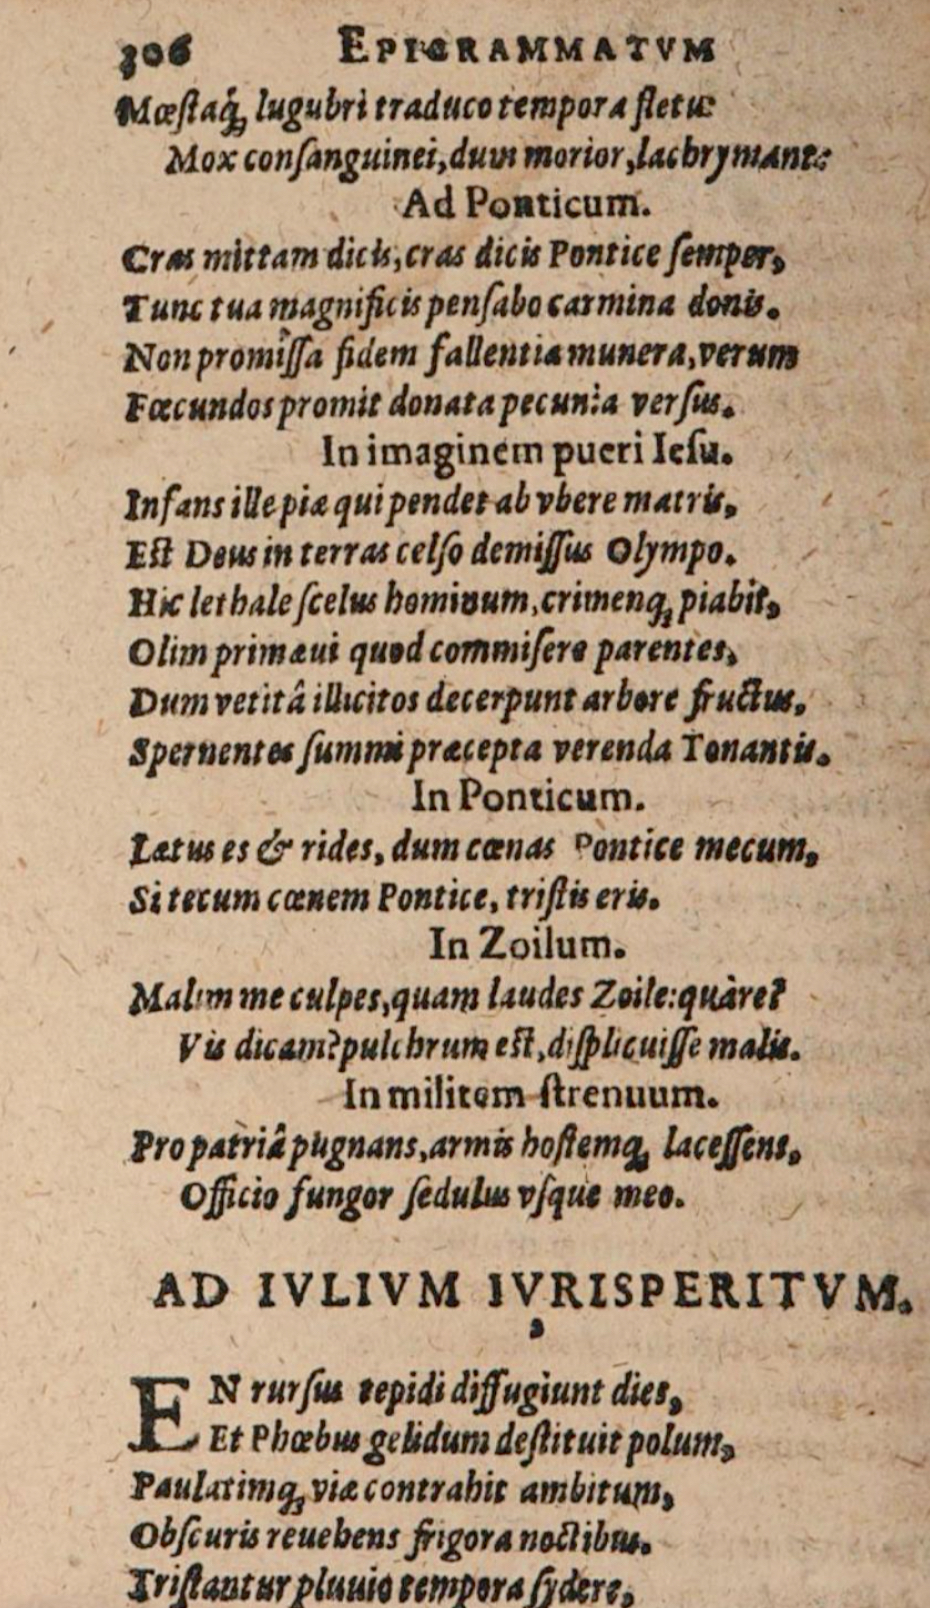 306 EPIGRAMMATVM
Mœstaq́; lugubri traduco tempora fletu:
Mox consanguinei, dum morior, lachrymant:
Ad Ponticum.
Cras mittam dicis, cras dicis Pontice semper,
Tunc tua magnificis pensabo carmina donis.
Non promissa fidem fallentia munera, verum
Fœcundos promit donata pecunia versus.
In imaginem pueri Iesu.
Infans ille piæ qui pendet ab vbere matris,
Est Deus in terras celso demissus Olympo.
Hic lethale scelus hominum, crimenq; piabit,
Olim primæui quod commisere parentes,
Dum vetitâ illicitos decerpunt arbore fructus,
Spernentes summi præcepta verenda Tonantis.
In Ponticum.
Lætus es & rides, dum cœnas Pontice mecum,
Si tecum cœnem Pontice, tristis eris.
In Zoilum.
Malim me culpes, quam laudes Zoile: quàre?
Vis dicam? pulchrum est, displicuisse malis.
In militem strenuum.
Pro patriâ pugnans, armis hostemq; lacessens,
Officio fungor sedulus vsque meo.
AD IVLIVM IVRISPERITVM.
EN rursus tepidi diffugiunt dies,
Et Phœbus gelidum destituit polum,
Paulatimq; viæ contrahit ambitum,
Obscuris reuehens frigora noctibus.
Tristantur pluuio tempora sydere,